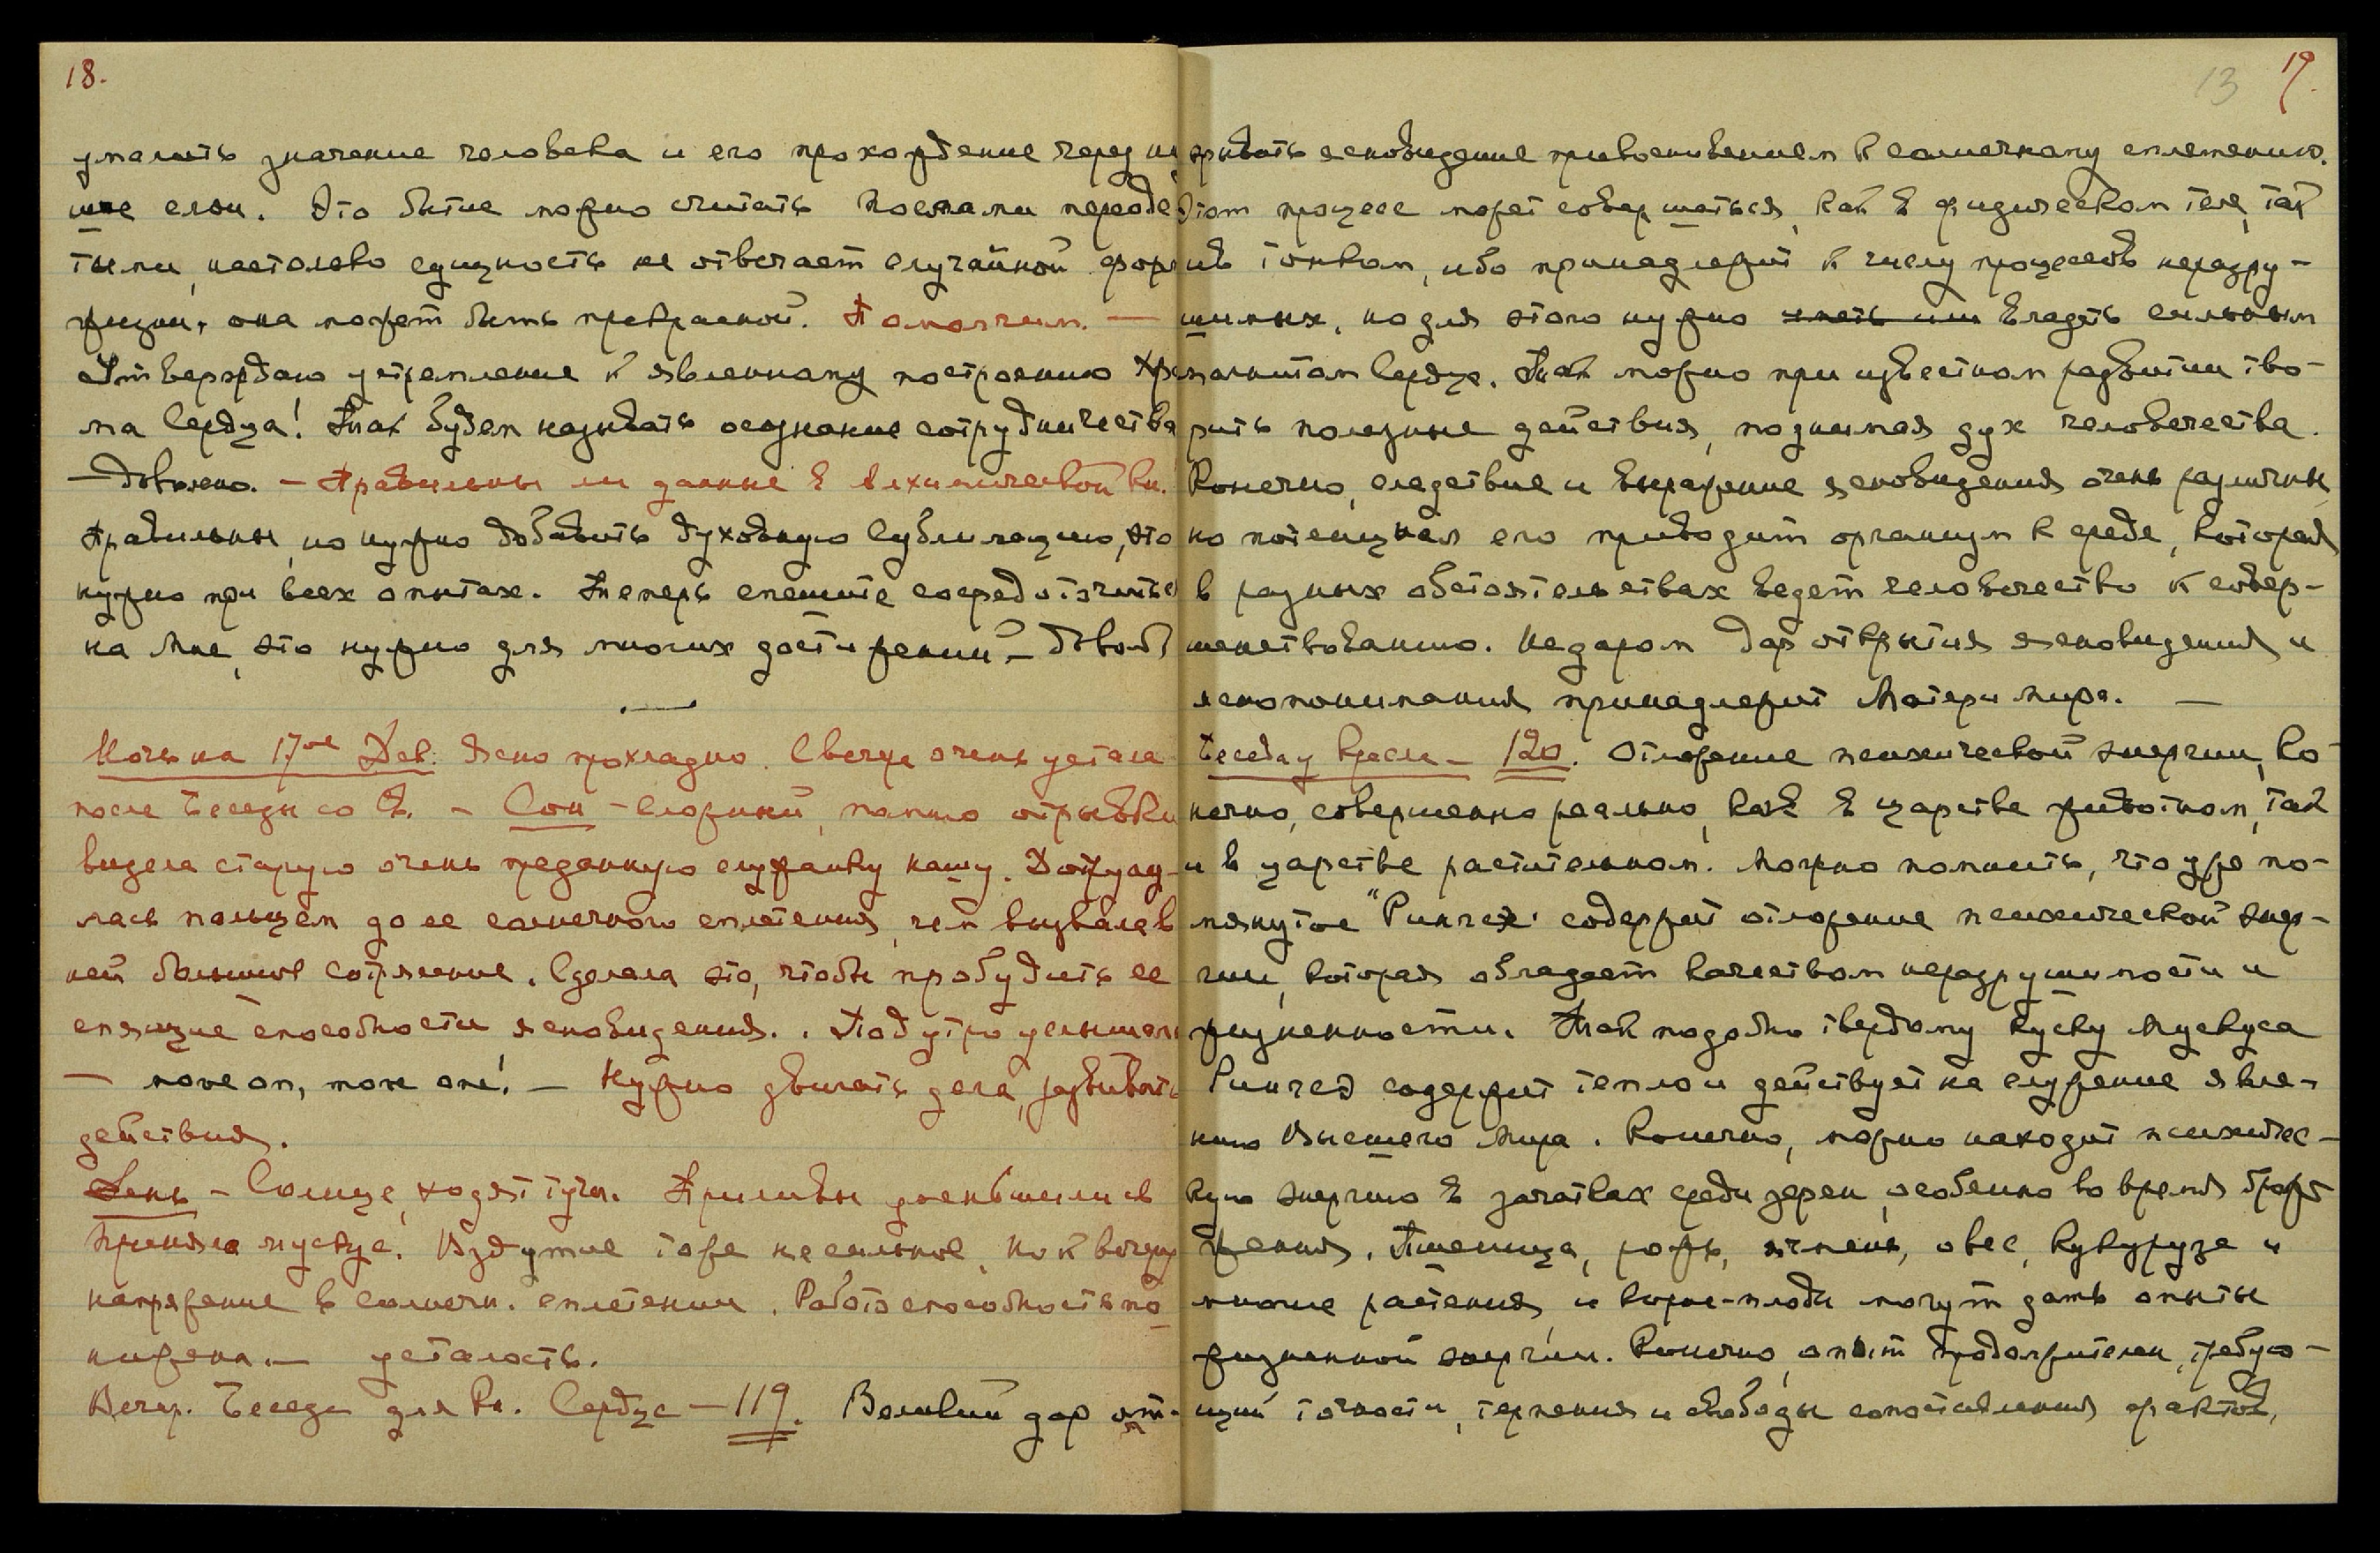 18.
умалить значение человека и его прохождение через низ
шие слои. Это бытие можно считать Моснами переоде
тыми, настолько сущность не отвечает случайной форме
жизни, она может быть прекрасной. Помолчим. —
Утверждаю устремление к явленному построению Хра
ма Сердца! Так будем называть осознание сотрудничества
— Довольно. — Правильны ли данные в Алхимической кн.
Правильны, но нужно добавить духовную Сублимацию, это
нужно при всех опытах. Теперь спешите сосредоточиться
на Мне, это нужно для многих достижений — Довол
Ночь на 17ое Дек. Ясно прохладно. С вечера очень устала
после Беседы со В. — Сон — сложный, помню отрывки
видела старую очень преданную служанку нашу. Дотронулась
лась пальцем до ее солнечного сплетения, чем вызвала в
ней большое сотрясение. Сделала это, чтобы пробудить ее
спящие способности ясновидения. . Под утро услышала
— move on, move one! — Нужно двигать дела, развивать
действия.
День — Солнце, ходят тучи. Приливы уменьшились
Приняла мускус. Вздутие тоже не сильное, но к вечеру
напряжение в солнечн. сплетении. Работоспособность по
нижена. — усталость.
Вечер. Беседа для Кн. Сердце — 119. Великий дар от-
13 19.
крывать ясновидение прикосновением к солнечному сплетению.
Этот процесс может совершаться, как в физическом теле, так
и в тонком, ибо принадлежит к числу процессов неразру-
шимых, но для этого нужно иметь или владеть сильным
магнитом Сердца. Так можно при известном развитии тво-
рить полезные действия, поднимая дух человечества.
Конечно, следствие и выражение ясновидения очень различны,
но потенциал его приводит организм к среде, которая
в разных обстоятельствах ведет человечество к совер-
шенствованию. Недаром дар открытия ясновидения и
яснопонимания принадлежит Матери Мира. —
Беседа у кресла — 120. Отложение психической энергии, ко-
нечно, совершенно реально, как в царстве животном, так
и в царстве растительном. Можно помнить, что уже по-
мянутое "Рингсэ" содержит отложение психической энер-
гии, которая обладает качеством неразрушимости и
жизненности. Так подобно твердому куску Мускуса
Рингсэ содержит тепло и действует на служение явле-
нию Высшего Мира. Конечно, можно находить психичес-
кую энергию в зачатках среди зерен, особенно во время брож
жения. Пшеница, рожь, ячмень, овес, кукуруза и
многие растения, и корне-плоды могут дать опыты
жизненной энергии. Конечно, опыт продолжителен, требую-
щий точности, терпения и свободы сопоставления фактов,